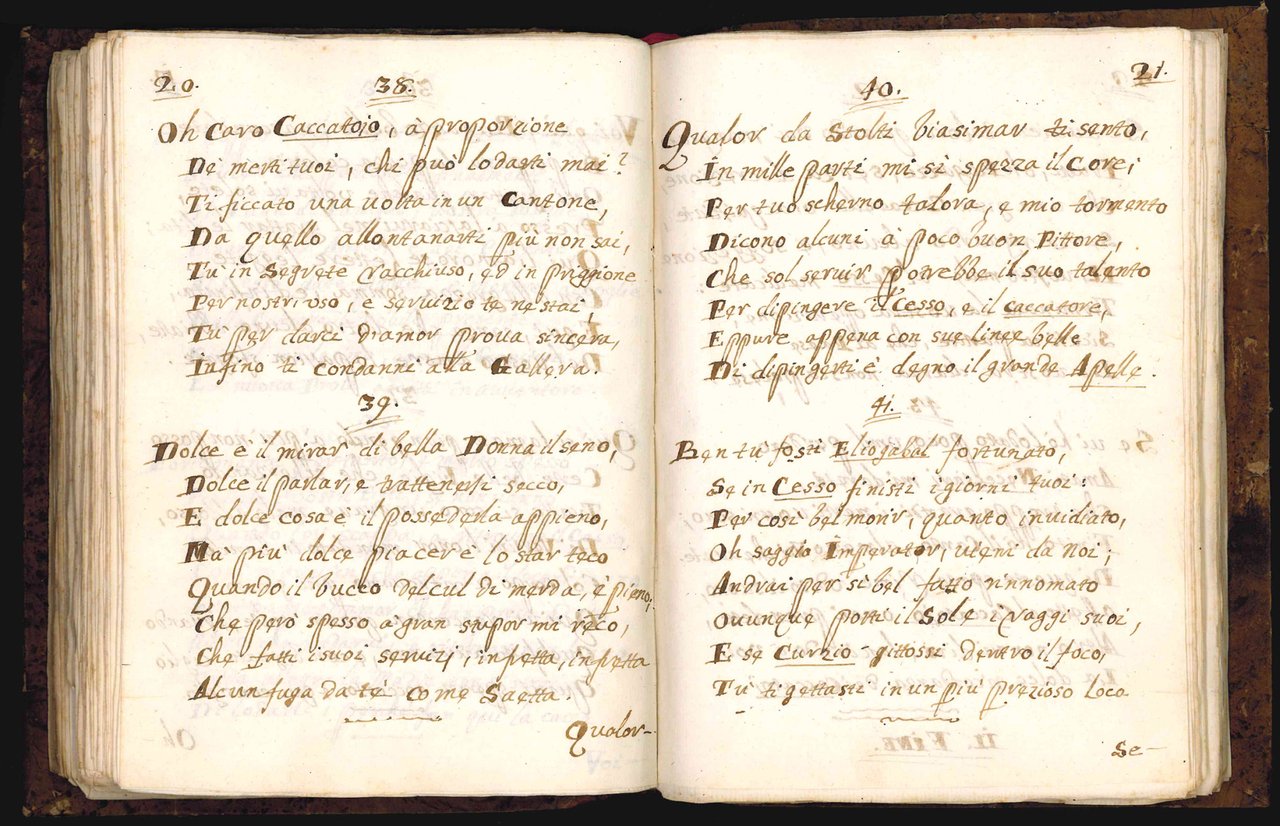 20.
38.
Oh Caro Caccatojo, à proporzione
De' merti tuoi, chi può lodarti mai?
Ti ficcato una volta in un Cantone,
Da quello allontanarti più non sai,
Tù in Segrete racchiuso, ed in priggione
Per nostr'uso, e servizio te ne stai,
Tù per darci d'amor prova sincera,
Infino ti condanni alla Gallera.
39.
Dolce è il mirar di bella Donna il seno,
Dolce il parlar, e trattenersi secco,
E dolce cosa è il possederla appieno,
Mà più dolce piacer è lo star teco
Quando il buceo del cul di merda, è pieno,
Che però spesso à gran stupor mi reco,
Che fatti i suoi servizj, in fretta, in fretta
Alcun fuga da tè come Saetta.
Qualor-
21.
40.
Qualor da Stolti biasimar ti sento,
In mille parti mi si spezza il Core;
Per tuo scherno talora, e mio tormento
Dicono alcuni à poco buon Pittore,
Che sol servir potrebbe il suo talento
Per dipingere il Cesso, e il caccatore,
Eppure appena con sue linee belle
Di dipingerti è degno il grande Apelle.
41.
Ben tù fosti Eliogabal fortunato,
Se in Cesso finisti i giorni tuoi:
Per così bel morir, quanto invidiato,
Oh saggio Imperator, vieni da noi;
Andrai per sì bel fatto rinnomato
Ovunque porti il Sole i raggi suoi,
E se Curzio gittossi dentro il foco,
Tù ti gettasti in un più prezioso loco
Se-
IL FINE.